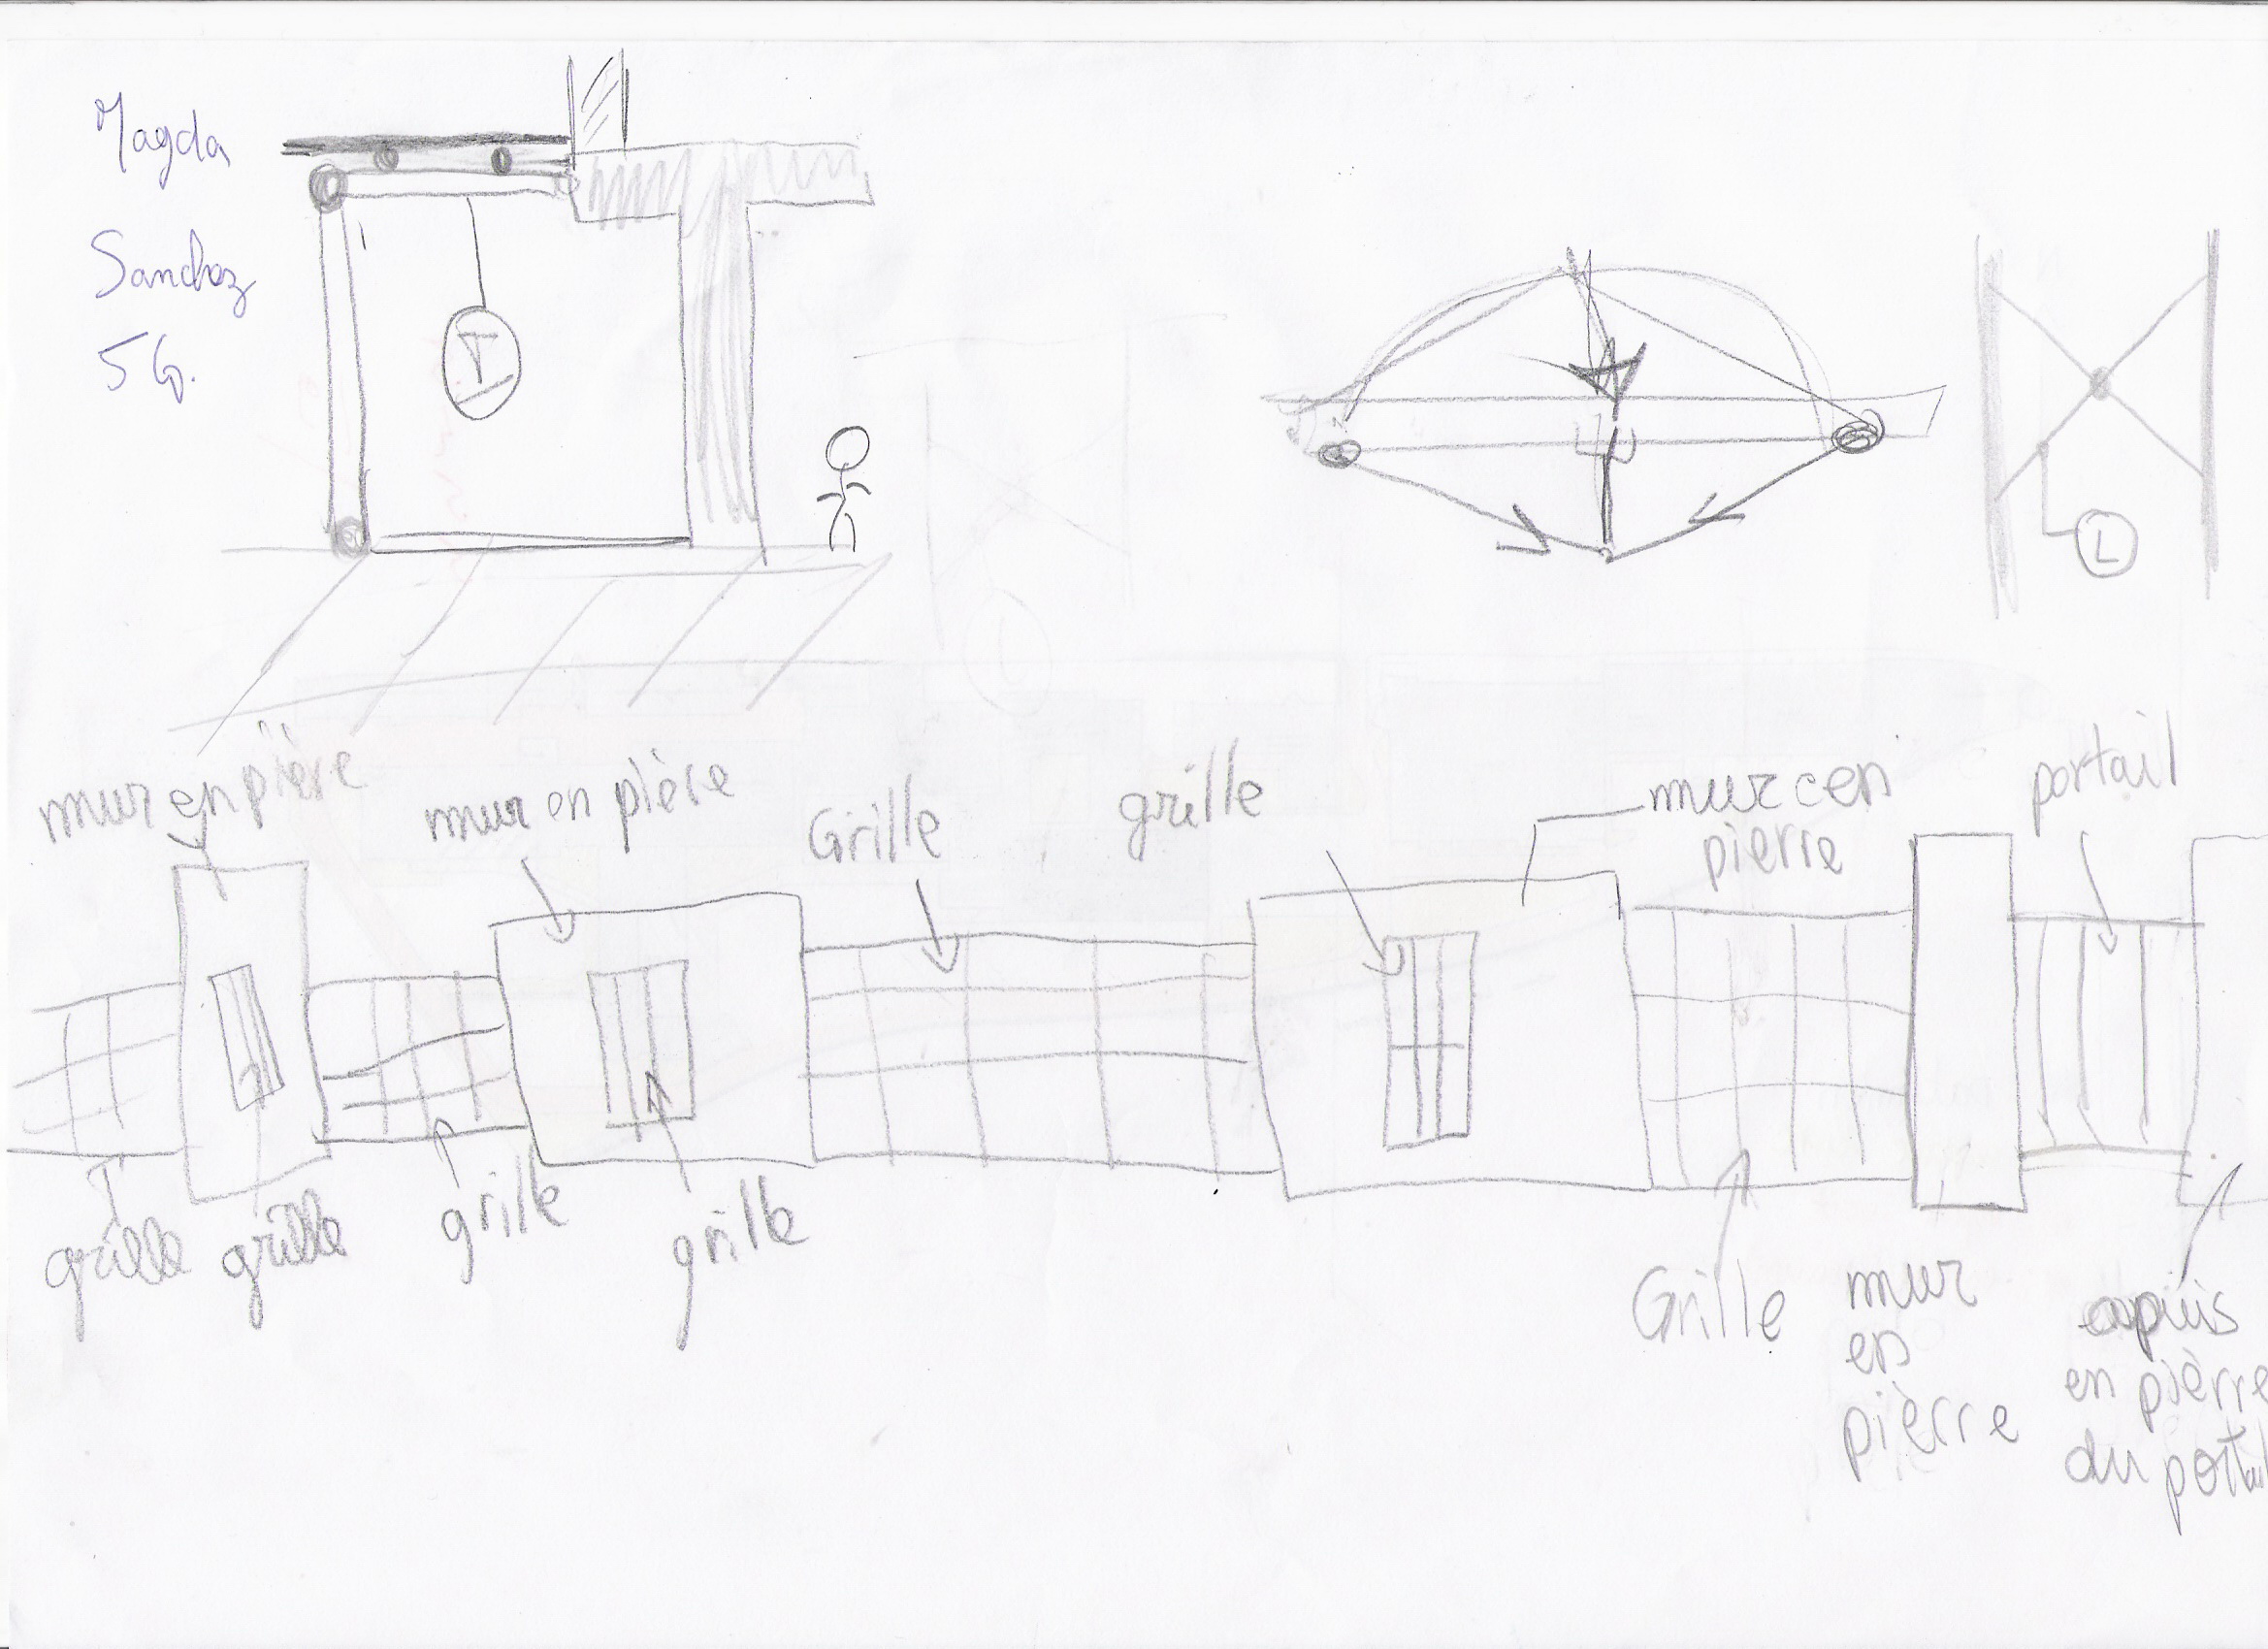 Magda
Sanchez
5G.
T
L
mur en pière
mur en pière
Grille
grille
mur en
pierre
portail
grille
grille
grille
grille
Grille
mur
en
pièrre
apuis
en pièrre
du portail